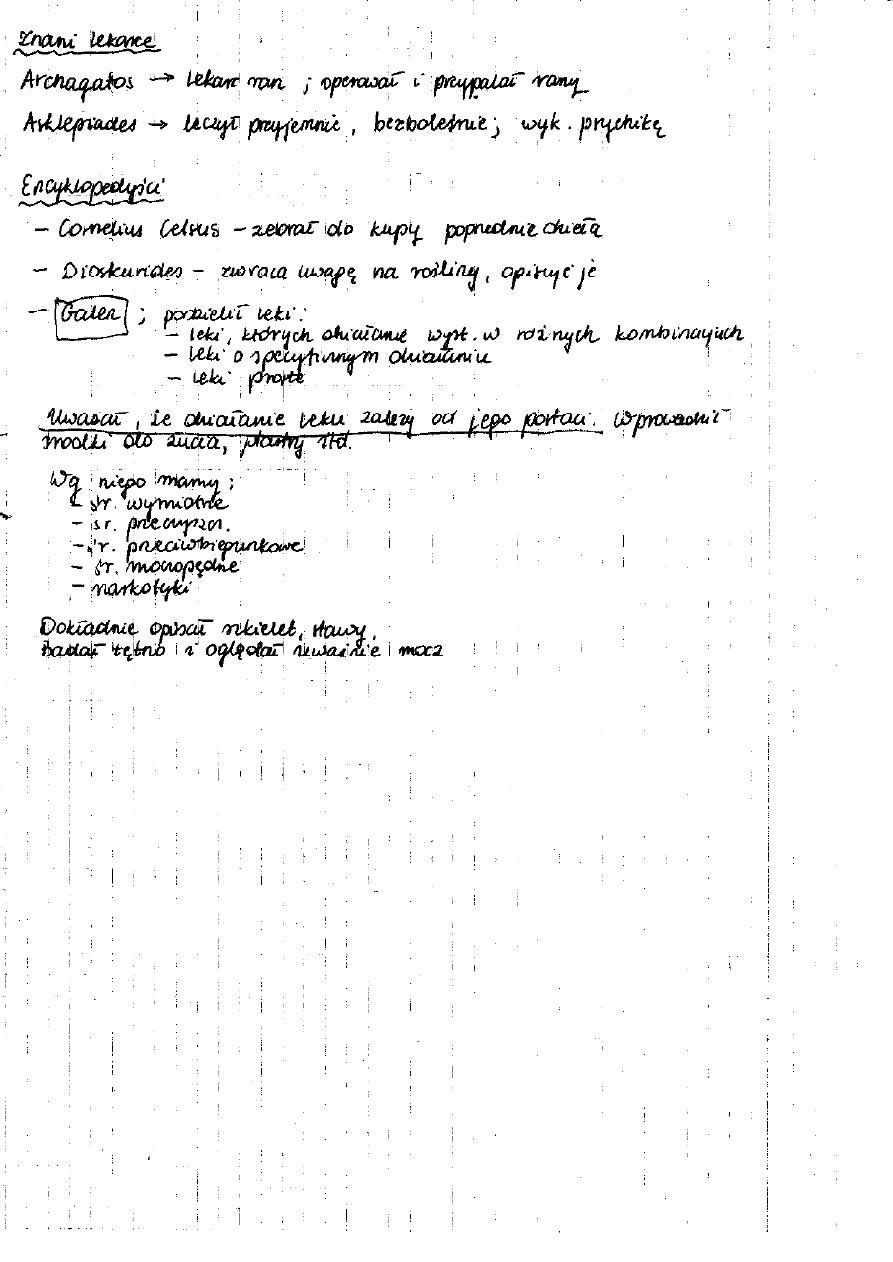 Znani lekarze
Archagatos → lekarz ran ; operował i przypalał rany
Asklepiades → leczył przyjemnie, bezboleśnie; wyk. psychikę
Encyklopedyści
- Cornelius Celsus - zebrał do kupy poprzednie dzieła
- Dioskurides - zwraca uwagę na rośliny, opisuje je
- Galen ; podzielił leki:
- leki, których działanie wyst. w różnych kombinacjach
- leki o specyficznym działaniu
- leki proste
Uważał, że działanie leku zależy od jego postaci. Wprowadził
środki do żucia, plastry itd.
Wg niego mamy:
- śr. wymiotne
- śr. przeczyszcz.
- śr. przeciwbiegunkowe
- śr. moczopędne
- narkotyki
Dokładnie opisał szkielet, stawy,
badał tętno i oglądał uważnie mocz